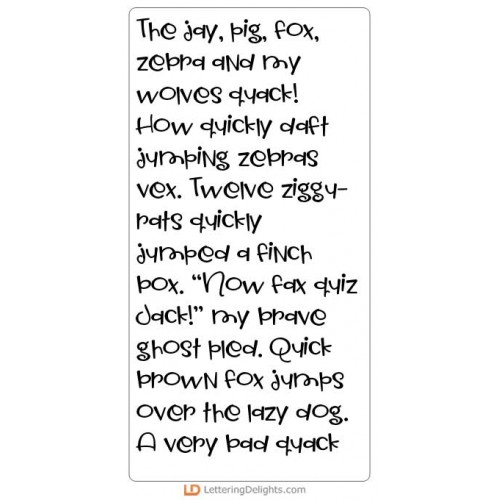 The jay, pig, fox,
zebra and my
wolves quack!
How quickly daft
jumping zebras
vex. Twelve ziggu-
rats quickly
jumped a finch
box. “Now fax quiz
Jack!” my brave
ghost pled. Quick
brown fox jumps
over the lazy dog.
A very bad quack
LD LetteringDelights.com